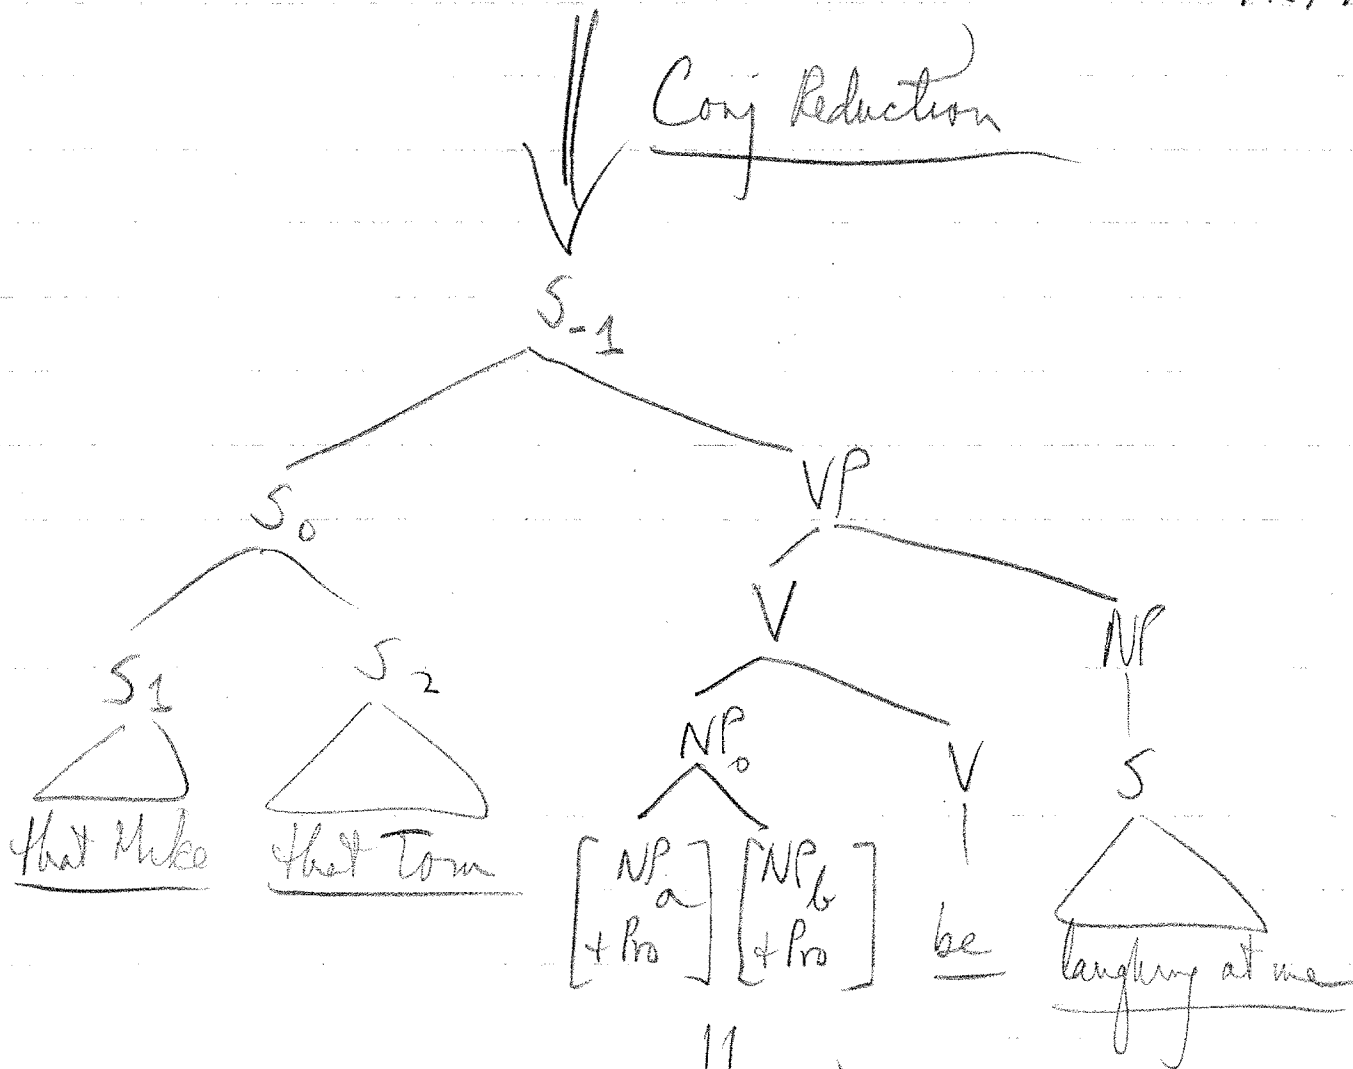 Conj Reduction
S-1
S0 VP
V NP
S1 S2
NP0 V S
that Mike that Tom [NPa +Pro] [NPb +Pro]
be laughing at me